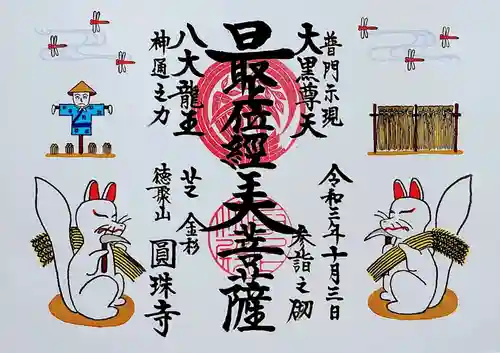 普門示現
大黒尊天
最上位経王大菩薩
八大龍王
神通之力
令和三年十月三日
参詣之砌
芝 金杉
徳聚山
圓珠寺